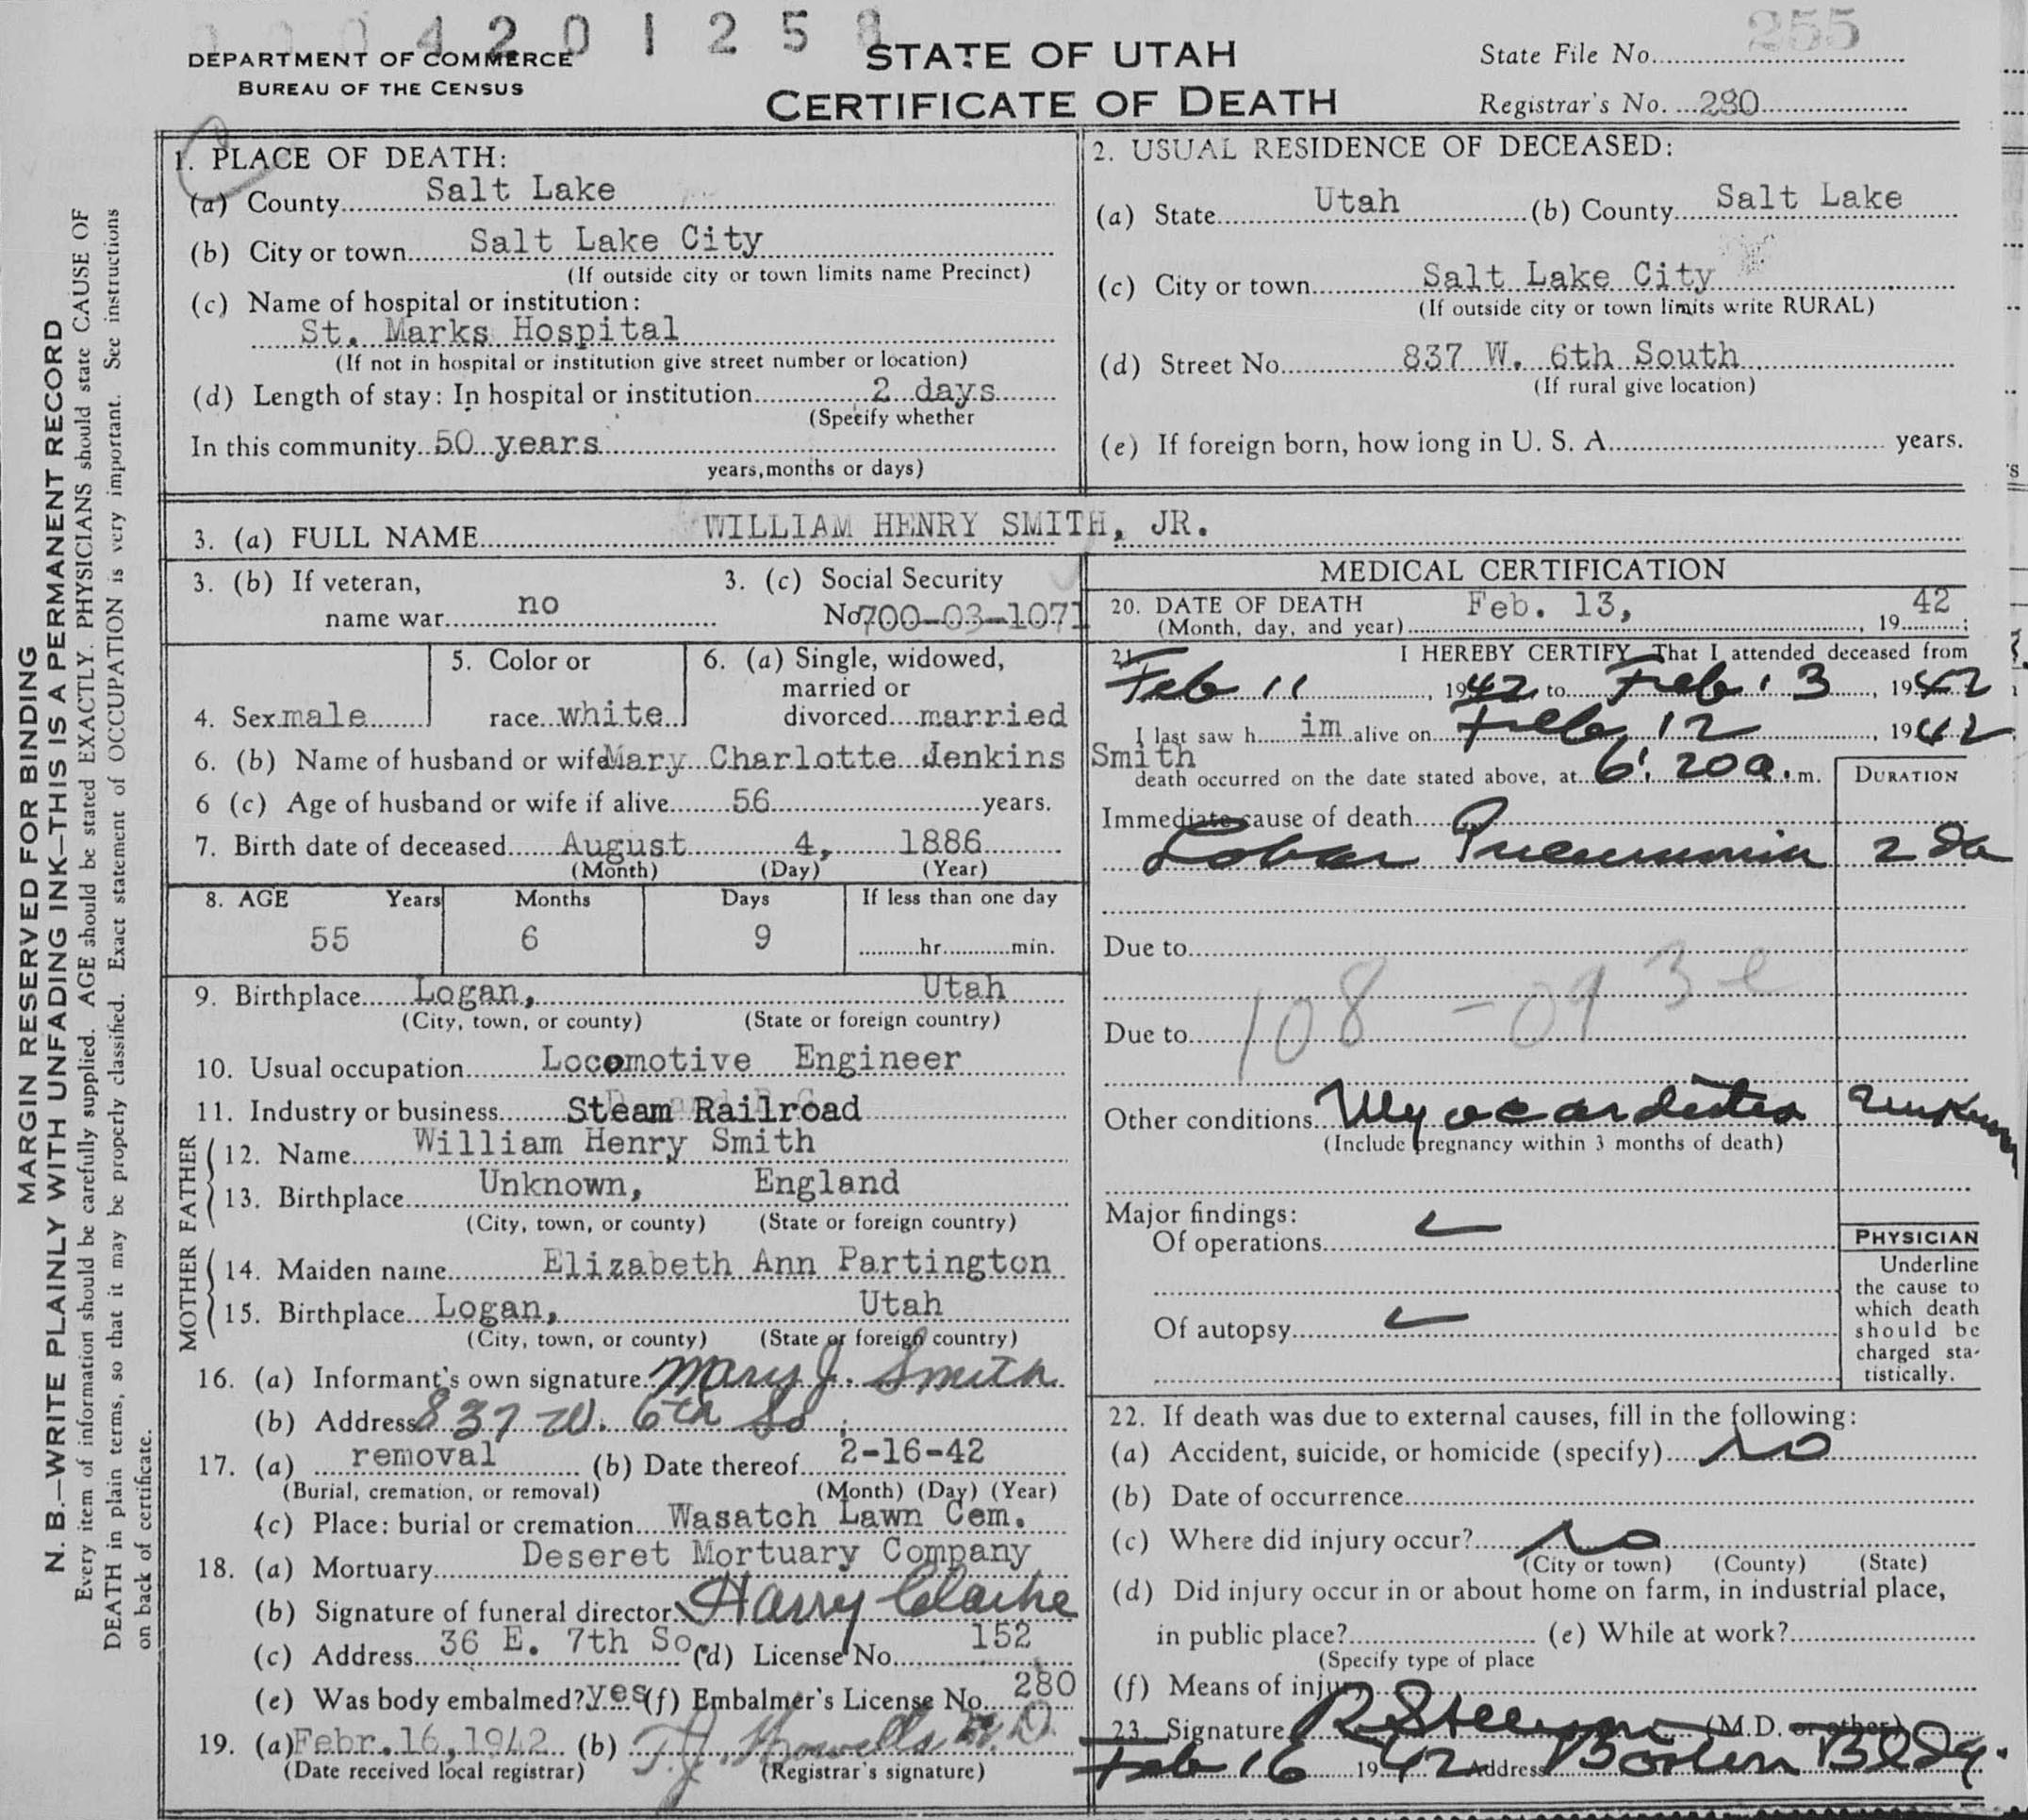 0 0 0 4 2 0 1 2 5 8
DEPARTMENT OF COMMERCE
BUREAU OF THE CENSUS
STATE OF UTAH
CERTIFICATE OF DEATH
State File No. 255
Registrar's No. 280
MARGIN RESERVED FOR BINDING
N. B.—WRITE PLAINLY WITH UNFADING INK—THIS IS A PERMANENT RECORD
Every item of information should be carefully supplied. AGE should be stated EXACTLY. PHYSICIANS should state CAUSE OF
DEATH in plain terms, so that it may be properly classified. Exact statement of OCCUPATION is very important. See instructions
on back of certificate.
1. PLACE OF DEATH:
(a) County Salt Lake
(b) City or town Salt Lake City
(If outside city or town limits name Precinct)
(c) Name of hospital or institution:
St. Marks Hospital
(If not in hospital or institution give street number or location)
(d) Length of stay: In hospital or institution 2 days
(Specify whether
In this community 50 years
years, months or days)
2. USUAL RESIDENCE OF DECEASED:
(a) State Utah (b) County Salt Lake
(c) City or town Salt Lake City
(If outside city or town limits write RURAL)
(d) Street No. 837 W. 6th South
(If rural give location)
(e) If foreign born, how long in U. S. A. years.
3. (a) FULL NAME WILLIAM HENRY SMITH, JR.
3. (b) If veteran,
name war no
3. (c) Social Security
No. 700-03-1071
4. Sex male
5. Color or
race white
6. (a) Single, widowed,
married or
divorced married
6. (b) Name of husband or wife Mary Charlotte Jenkins Smith
6 (c) Age of husband or wife if alive 56 years.
7. Birth date of deceased August 4, 1886
(Month) (Day) (Year)
8. AGE Years Months Days If less than one day
55 6 9 hr. min.
9. Birthplace Logan, Utah
(City, town, or county) (State or foreign country)
10. Usual occupation Locomotive Engineer
11. Industry or business Steam Railroad
FATHER
12. Name William Henry Smith
13. Birthplace Unknown, England
(City, town, or county) (State or foreign country)
MOTHER
14. Maiden name Elizabeth Ann Partington
15. Birthplace Logan, Utah
(City, town, or county) (State or foreign country)
16. (a) Informant's own signature Mary J. Smith
(b) Address 837 W. 6th So.
17. (a) removal (b) Date thereof 2-16-42
(Burial, cremation, or removal) (Month) (Day) (Year)
(c) Place: burial or cremation Wasatch Lawn Cem.
18. (a) Mortuary Deseret Mortuary Company
(b) Signature of funeral director Harry Clarke
(c) Address 36 E. 7th So. (d) License No. 152
(e) Was body embalmed? yes (f) Embalmer's License No. 280
19. (a) Febr. 16, 1942 (b) T.J. Howells M.D.
(Date received local registrar) (Registrar's signature)
MEDICAL CERTIFICATION
20. DATE OF DEATH Feb. 13, 42
(Month, day, and year) , 19 ;
21. I HEREBY CERTIFY, That I attended deceased from
Feb 11, 1942 to Feb 13, 1942
I last saw h im alive on Feb 12, 1942
death occurred on the date stated above, at 6:20 a.m.
DURATION
Immediate cause of death
Lobar Pneumonia 2 da
Due to
108 - 093 e
Due to
Other conditions Myocarditis Unknown
(Include pregnancy within 3 months of death)
Major findings:
Of operations
Of autopsy
PHYSICIAN
Underline
the cause to
which death
should be
charged sta-
tistically.
22. If death was due to external causes, fill in the following:
(a) Accident, suicide, or homicide (specify) no
(b) Date of occurrence
(c) Where did injury occur? no
(City or town) (County) (State)
(d) Did injury occur in or about home on farm, in industrial place,
in public place? (e) While at work?
(Specify type of place
(f) Means of injury
23. Signature (M.D. or other)
Feb 16 1942 Address Boston Bldg.